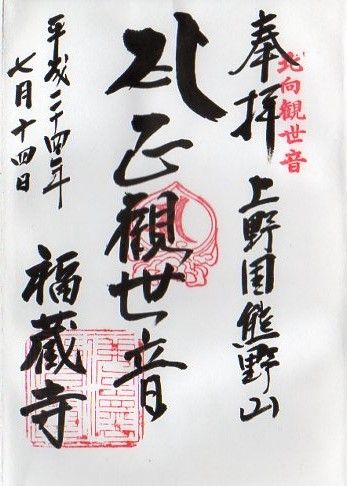 奉拝
上野国熊野山
北向観世音
正觀世音
平成二十四年
七月十四日
福蔵寺